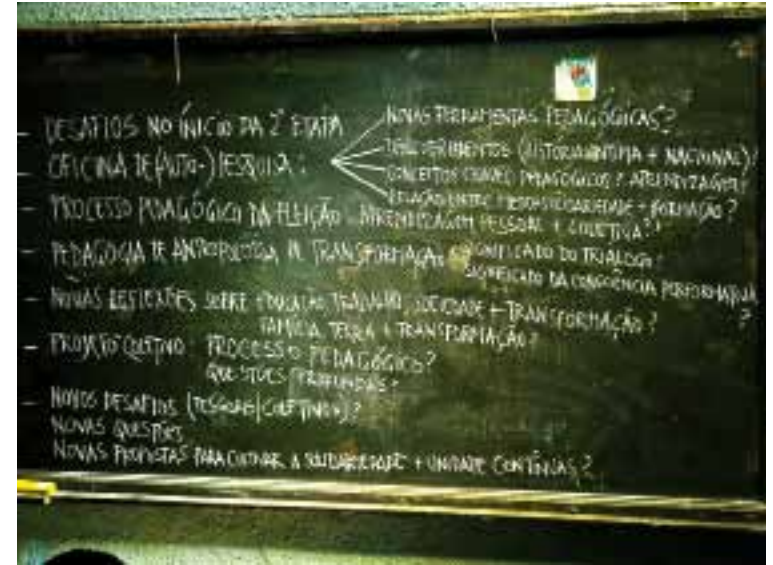 - DESAFIOS NO ÍNICIO DA 2ª ETAPA
- OFICINA DE (AUTO-) PESQUISA:
NOVAS FERRAMENTAS PEDAGÓGICAS?
DESCOBRIMENTOS (HISTÓRIA ÍNTIMA + NACIONAL)?
CONCEITOS CHAVES PEDAGÓGICOS? APRENDIZAGEM?
RELAÇÃO ENTRE + FORMAÇÃO?
- PROCESSO PEDAGÓGICO DA : APRENDIZAGEM PESSOAL + COLETIVA?
- PEDAGOGIA DE DE TRANSFORMAÇÃO: SIGNIFICADO DO TRIALOGO?
SIGNIFICADO DA CONSCIÊNCIA PERFORMATIVA?
- NOVAS REFLEXÕES SOBRE EDUCAÇÃO, TRABALHO, SOCIEDADE + TRANSFORMAÇÃO?
FAMÍLIA, TERRA + TRANSFORMAÇÃO?
- PROJETO COLETIVO: PROCESSO PEDAGÓGICO?
QUESTÕES PROFUNDAS?
- NOVOS DESAFIOS (PESSOAIS/COLETIVOS)?
NOVAS QUESTÕES
NOVAS PROPOSTAS PARA CULTIVAR A SOLIDARIEDADE + UNIDADE CONTÍNUAS?